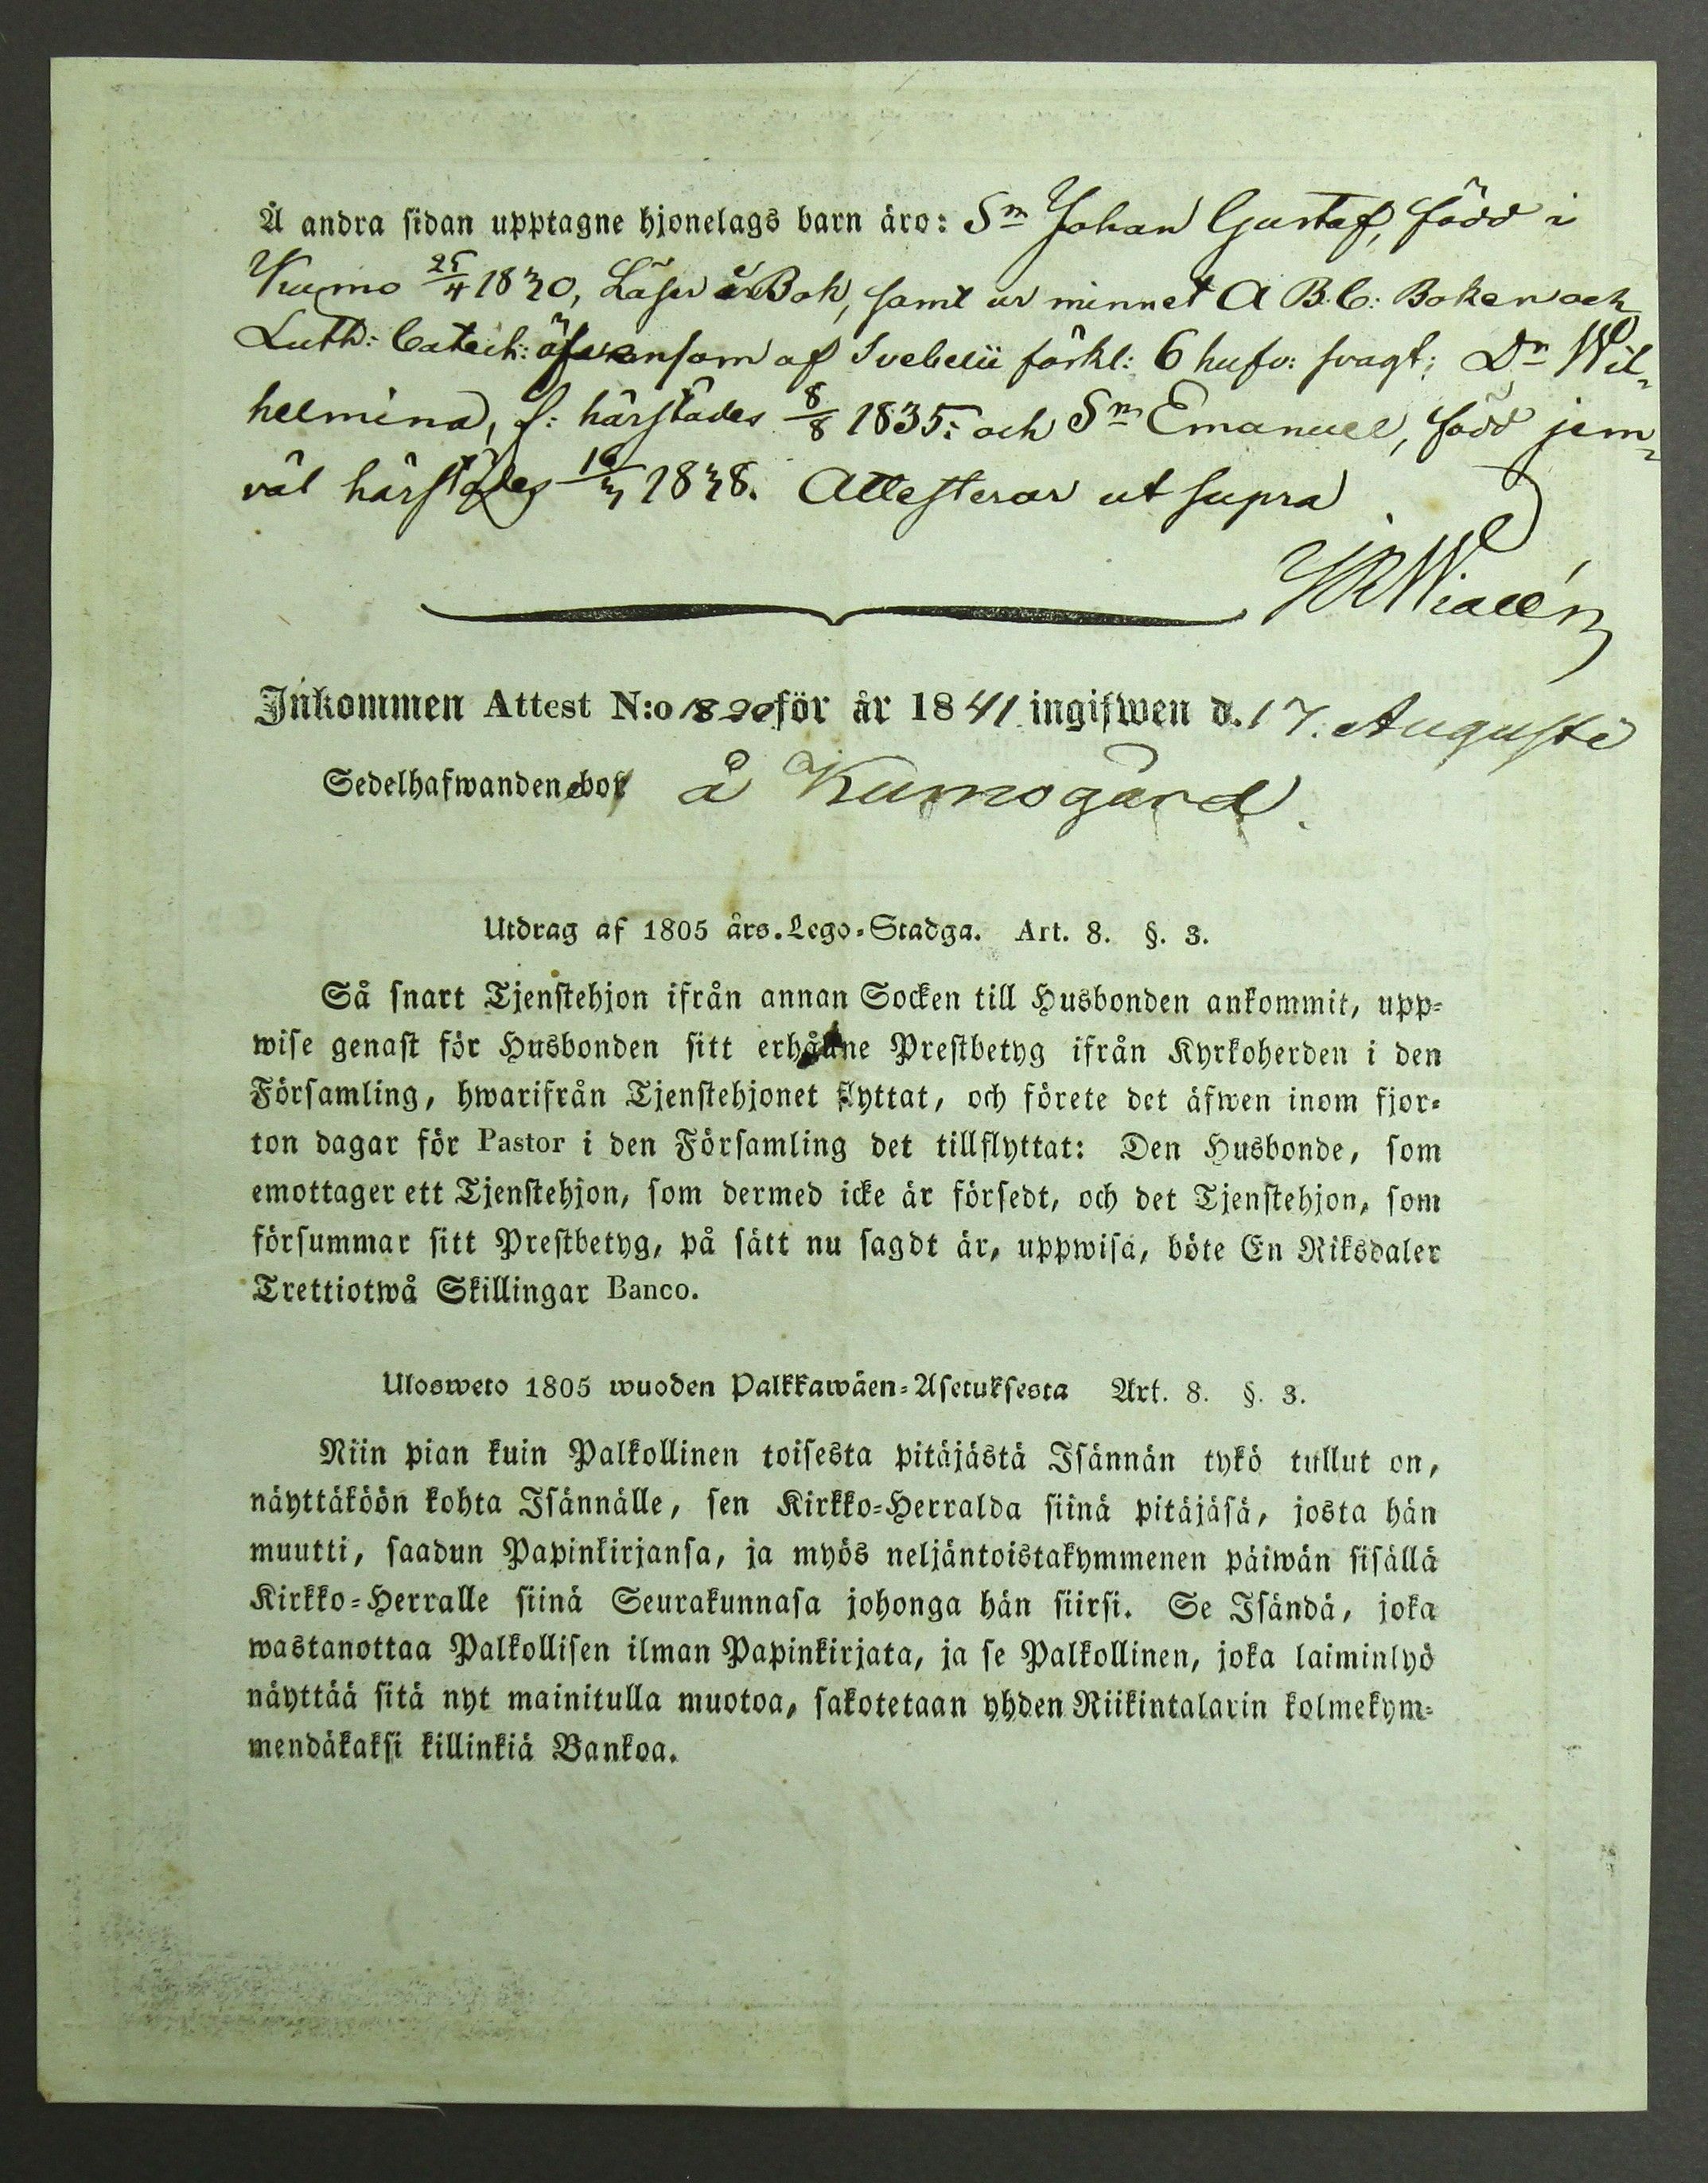 Å andra sidan upptagne hjonelags barn äro: Sn Johan Gustaf, född i
Kumo 25/4 1830, Läser i Bok, samt ur minnet A B.C: Boken och
Luth: Catech: äfvensom af Svebelii förkl: 6 hufv: svagt; Dn Wil„
helmina, f: härstädes 8/8 1835: och Sn Emanuel, född jem„
väl härstädes 1838. Attesterar ut supra
Inkommen Attest N:o för år 1841 ingifwen d. 17. Augusti
Sedelhafwanden bor å Kumogård.
Utdrag af 1805 års. Lego-Stadga. Art. 8. §. 3.
Så snart Tjenstehjon ifrån annan Socken till Husbonden ankommit, upp-
wise genast för Husbonden sitt erhållne Prestbetyg ifrån Kyrkoherden i den
Församling, hwarifrån Tjenstehjonet flyttat, och förete det äfwen inom fjor-
ton dagar för Pastor i den Församling det tillflyttat: Den Husbonde, som
emottager ett Tjenstehjon, som dermed icke är försedt, och det Tjenstehjon, som
försummar sitt Prestbetyg, på sätt nu sagdt är, uppwisa, böte En Riksdaler
Trettiotwå Skillingar Banco.
Ulosweto 1805 wuoden Palkkawäen-Asetuksesta Art. 8. §. 3.
Niin pian kuin Palkollinen toisesta pitäjästä Isännän tykö tullut on,
näyttäköön kohta Isännälle, sen Kirkko-Herralda siinä pitäjäsä, josta hän
muutti, saadun Papinkirjansa, ja myös neljäntoistakymmenen päiwän sisällä
Kirkko-Herralle siinä Seurakunnasa johonga hän siirsi. Se Isändä, joka
wastanottaa Palkollisen ilman Papinkirjata, ja se Palkollinen, joka laiminlyö
näyttää sitä nyt mainitulla muotoa, sakotetaan yhden Riikintalarin kolmekym-
mendäkaksi killinkiä Bankoa.